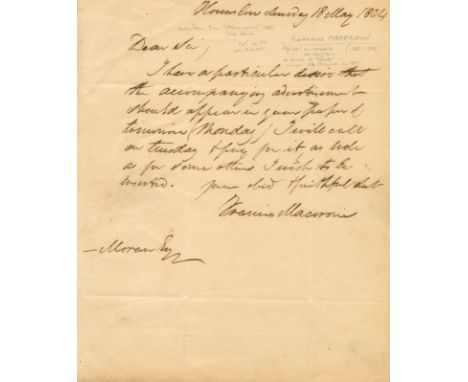 Hounslow Sunday 18 May 1834
Dear Sir,
I have a particular desire that
the accompanying advertisement
should appear in your paper of
tomorrow (Monday) I will call
on tuesday & pay for it as well
as for some others I wish to be
inserted. your obed & faithful Sert
Francis Maceroni
— Moran Esq